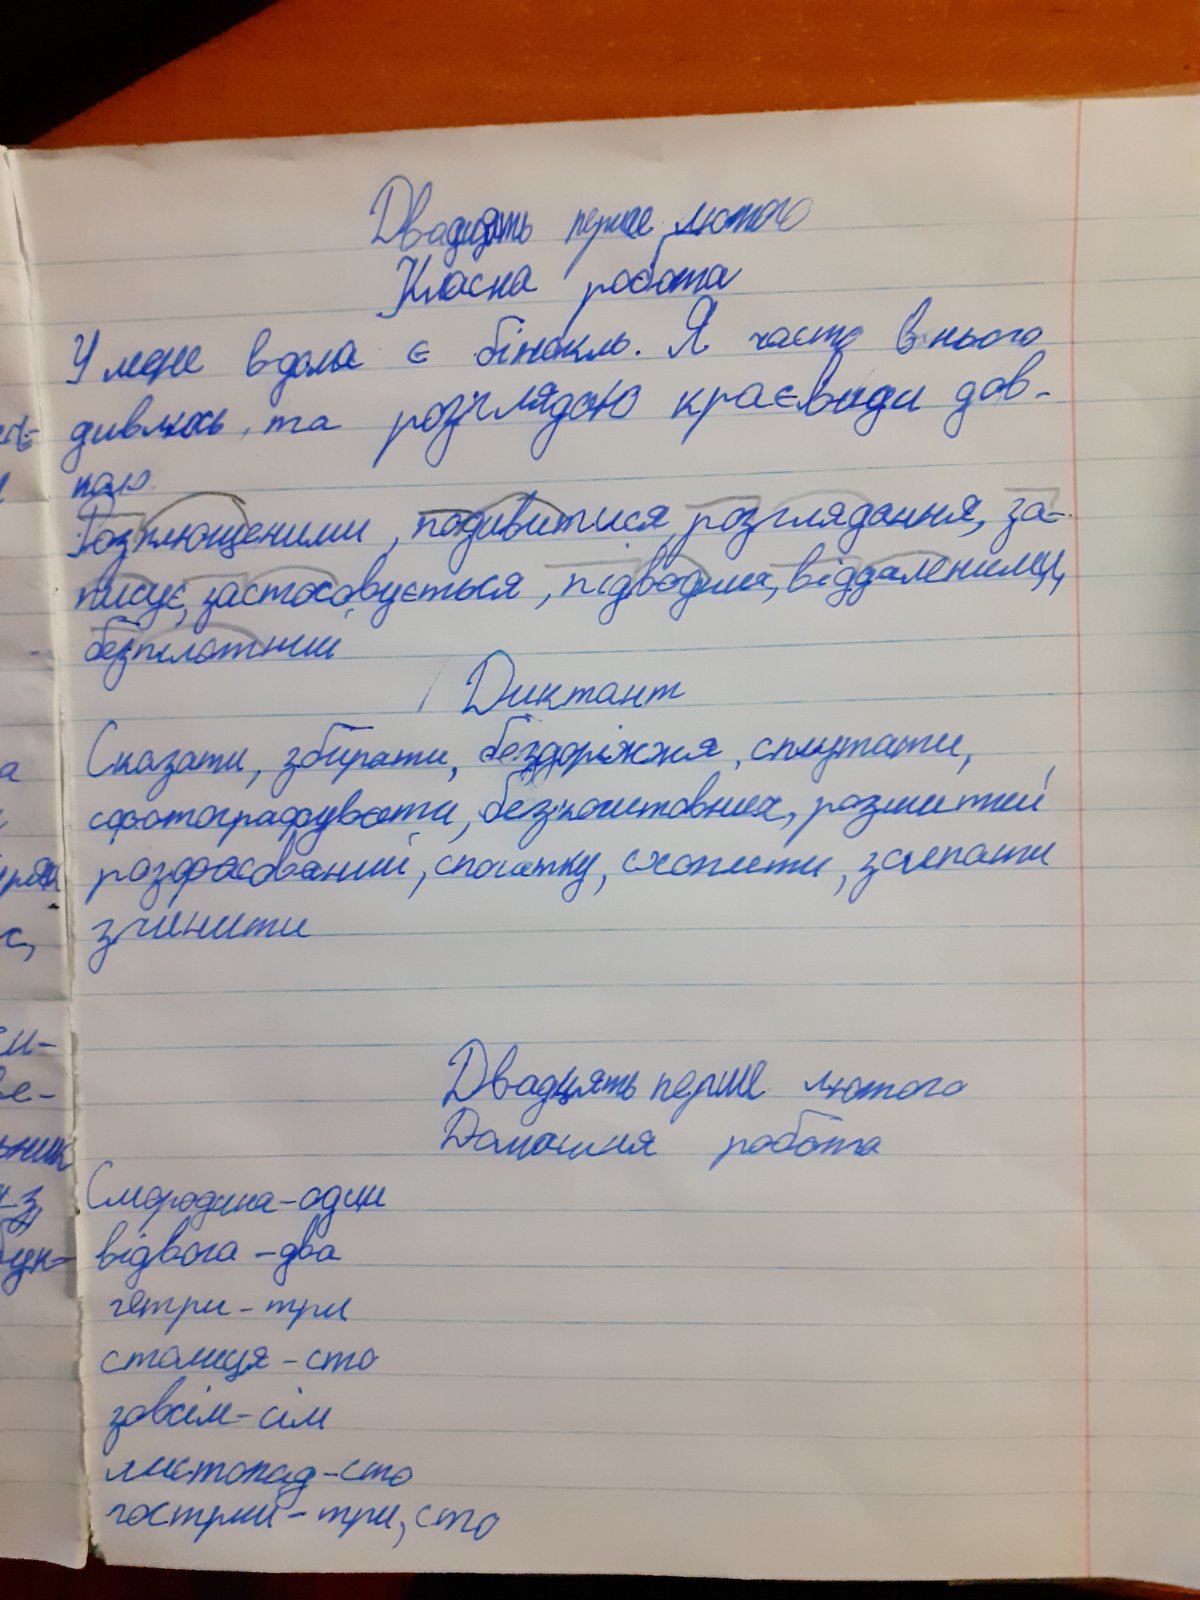 Двадцять перше лютого
Класна робота
У мене вдома є бінокль. Я часто в нього
дивлюсь, та розглядаю краєвиди дов-
кола.
Розплющеними, подивитися, розглядання, за-
писує, застосовується, підводних, віддаленими,
безпілотний
Диктант
Сказати, збирати, бездоріжжя, спитати,
сфотографувати, безкоштовних, розшитий
розфасований, спочатку, схопити, зчепити
зчинити
Двадцять перше лютого
Домашня робота
Смородина-один
відвага-два
гетри-три
столиця-сто
зовсім-сім
листопад-сто
гострий-три, сто